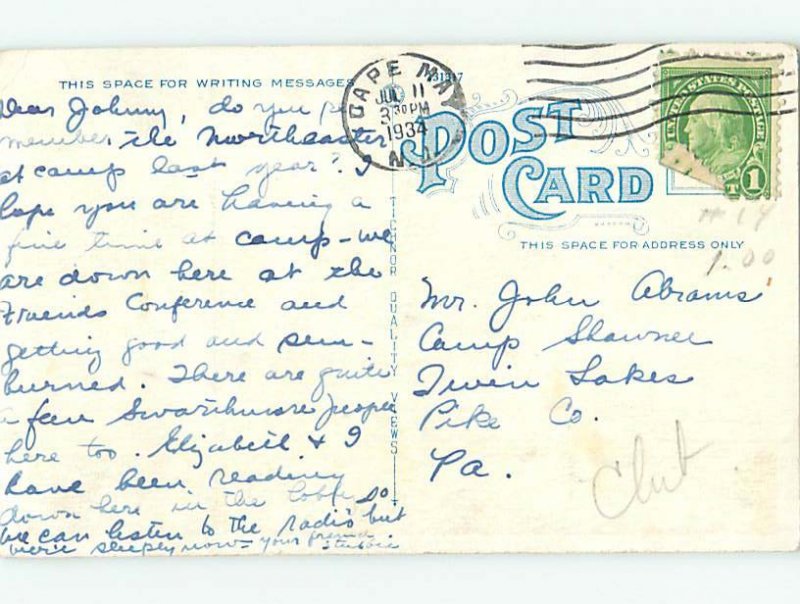 THIS SPACE FOR WRITING MESSAGES
Dear Johnny, do you re
member the Northeaster
at camp last year? I
hope you are having a
fine time at camp - we
are down here at the
Friends Conference and
getting good and sun-
burned. There are quite
a few Swarthmore people
here too. Elizabeth & I
have been reading
down here in the lobby so
we can listen to the radio but
we're sleepy now - your friend
CAPE MAY
JUL 11
3 30 PM
1934
N.J.
31917
POST
CARD
UNITED STATES POSTAGE
1
# 14
1.00
THIS SPACE FOR ADDRESS ONLY
TICHNOR QUALITY VIEWS
Mr. John Abrams
Camp Shawnee
Twin Lakes
Pike Co.
Pa.